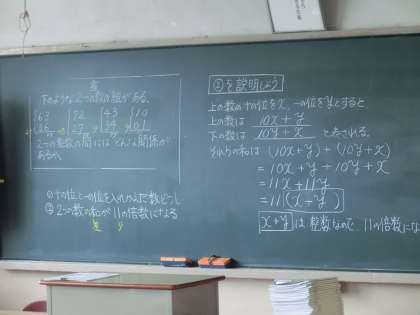 下のような2つの数の組がある。
63 72 43 10
36 27 34 01
2つの整数の間にはどんな関係が
あるか。
①十の位と一の位を入れかえた数どうし
②2つの数の和が11の倍数になる
②を説明しよう
上の数の十の位をx、一の位をyとすると、
上の数は 10x+y
下の数は 10y+x と表される。
それらの和は (10x+y)+(10y+x)
=10x+y+10y+x
=11x+11y
=11(x+y)
x+yは整数なので、11の倍数にな